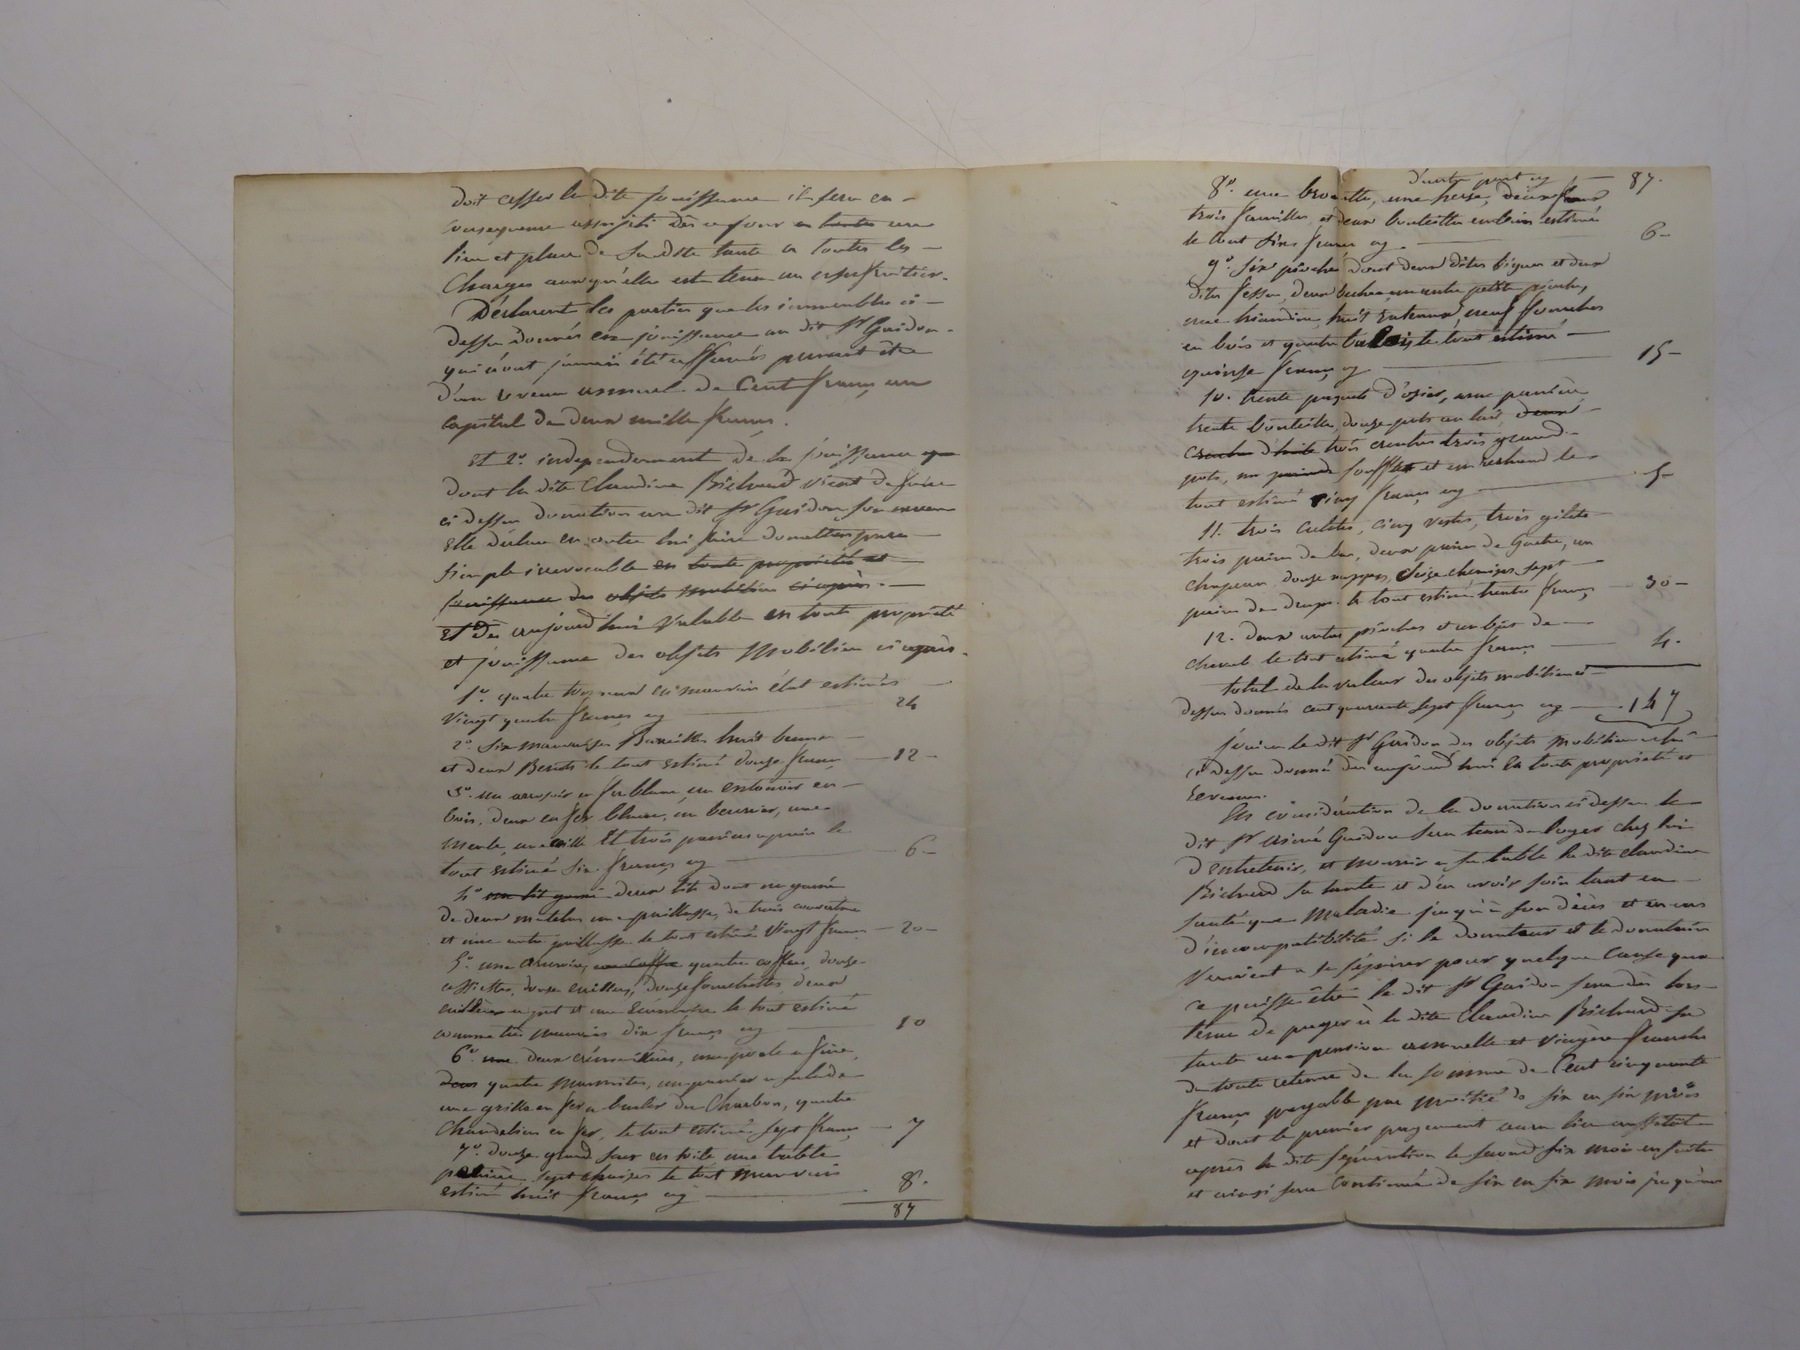 doit cesser la dite jouissance il sera en
conséquence assujéti dès ce jour en toutes au
lieu et place de sa dite tante a toutes les
Charges auxquelles est tenu un usufruitier.
Déclarent les parties que les immeubles ci
dessus donnés en jouissance au dit Sr Guidon
qui n'ont jamais été affermés peuvent être
d'un revenu annuel de Cent francs au
capital de deux mille francs.
Et 2o. indépendamment de la jouissance que
dont la dite Claudine Bichard vient de faire
ci dessus donation au dit Sr Guidon son neveu
Elle déclare en outre lui faire donation pure
simple irrevocable en toute propriété et
jouissance des objets mobiliers ci après.
et dès aujourd'hui valable en toute propriété
et jouissance des objets Mobiliers ci après.
1o. quatre en mauvais état estimés
vingt quatre francs cy 24
2o. Six mauvaises huit bennes
et deux le tout estimé douze francs 12
3o. un arrosoir en fer blanc, un entonnoir en
bois, deux en fer blanc, un beurrier, une
et trois paniers a pain le
tout estimé six francs cy 6
4o un lit garni deux lits dont un garni
de deux matelas une paillasse, de trois couvertures
et une autre paillasse le tout estimé Vingt francs 20
5o. une armoire, un coffre quatre coffres, douze
assiettes, douze cuillers, douze fourchettes, deux
cuillères a pot et une écumoire le tout estimé
comme très mauvais dix francs cy 10
6o. une deux crémaillères, une poele a frire,
deux quatre marmites, un panier a salade
une grille en fer a bruler du Charbon, quatre
Chandeliers en fer, le tout estimé sept francs 7
7o. douze grand sacs en toile une table
sept chaises le tout mauvais
estimé huit francs cy 8.
87
d'autre part cy 87.
8o. une brouette, une herse, deux
trois faucilles, et deux bouteilles en bois estimé
le tout six francs cy 6
9o. six pioches dont deux dites bigues et deux
dites fessou, deux beches, une autre petite pioche,
une huit neuf fourches
en bois et quatre le tout estimé
quinze francs cy 15
10. trente paquets d'osier, une panière
trente bouteilles, douze pots au lait, deux
cruches d'huile trois cruches trois grand
pots, un soufflet et un rechaud le
tout estimé cinq francs cy 5
11. trois culottes, cinq vestes, trois gilets
trois paires de bas, deux paires de Guetre, un
chapeau douze nappes, seize chemises, sept
paires de draps. le tout estimé trente francs 30
12. deux autres pioches et un bât de
cheval le tout estimé quatre francs 4.
total de la valeur des objets mobiliers ci
dessus donnés cent quarante sept francs cy 147
jouira le dit Sr Guidon des objets mobiliers
ci dessus donné dès aujourd'hui en toute propriété et
revenus.
En considération de la donation ci dessus le
dit Sr aimé Guidon sera tenu de loger chez lui
d'entretenir, et nourrir a sa table la dite claudine
Bichard sa tante et d'en avoir soin tant en
santé que Maladie jusqu'à son décès et en cas
d'incompatibilité si la donateur et le donataire
venaient a se séparer pour quelque cause que
ce puisse être le dit Sr Guidon sera dès lors
tenu de payer à la dite Claudine Bichard sa
tante une pension annuelle et viagère franche
de toute retenue de la somme de Cent cinquante
francs payable par moitié de six en six mois
et dont le premier payement aura lieu aussitot
après la dite séparation le second six mois ensuite
et ainsi sera Continué de six en six mois jusqu'au